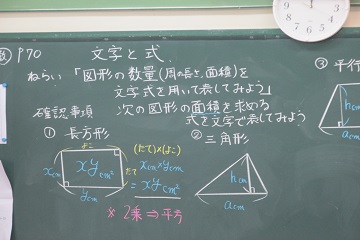 P70 文字と式
ねらい「図形の数量(周の長さ、面積)を
文字式を用いて表してみよう」
確認事項 次の図形の面積を求める
式を文字で表してみよう
① 長方形
よこ
たて
xcm
xycm²
ycm
(たて)×(よこ)
xcm×ycm
=xycm²
※ 2乗⇒平方
② 三角形
hcm
acm
③ 平行
hcm
acm